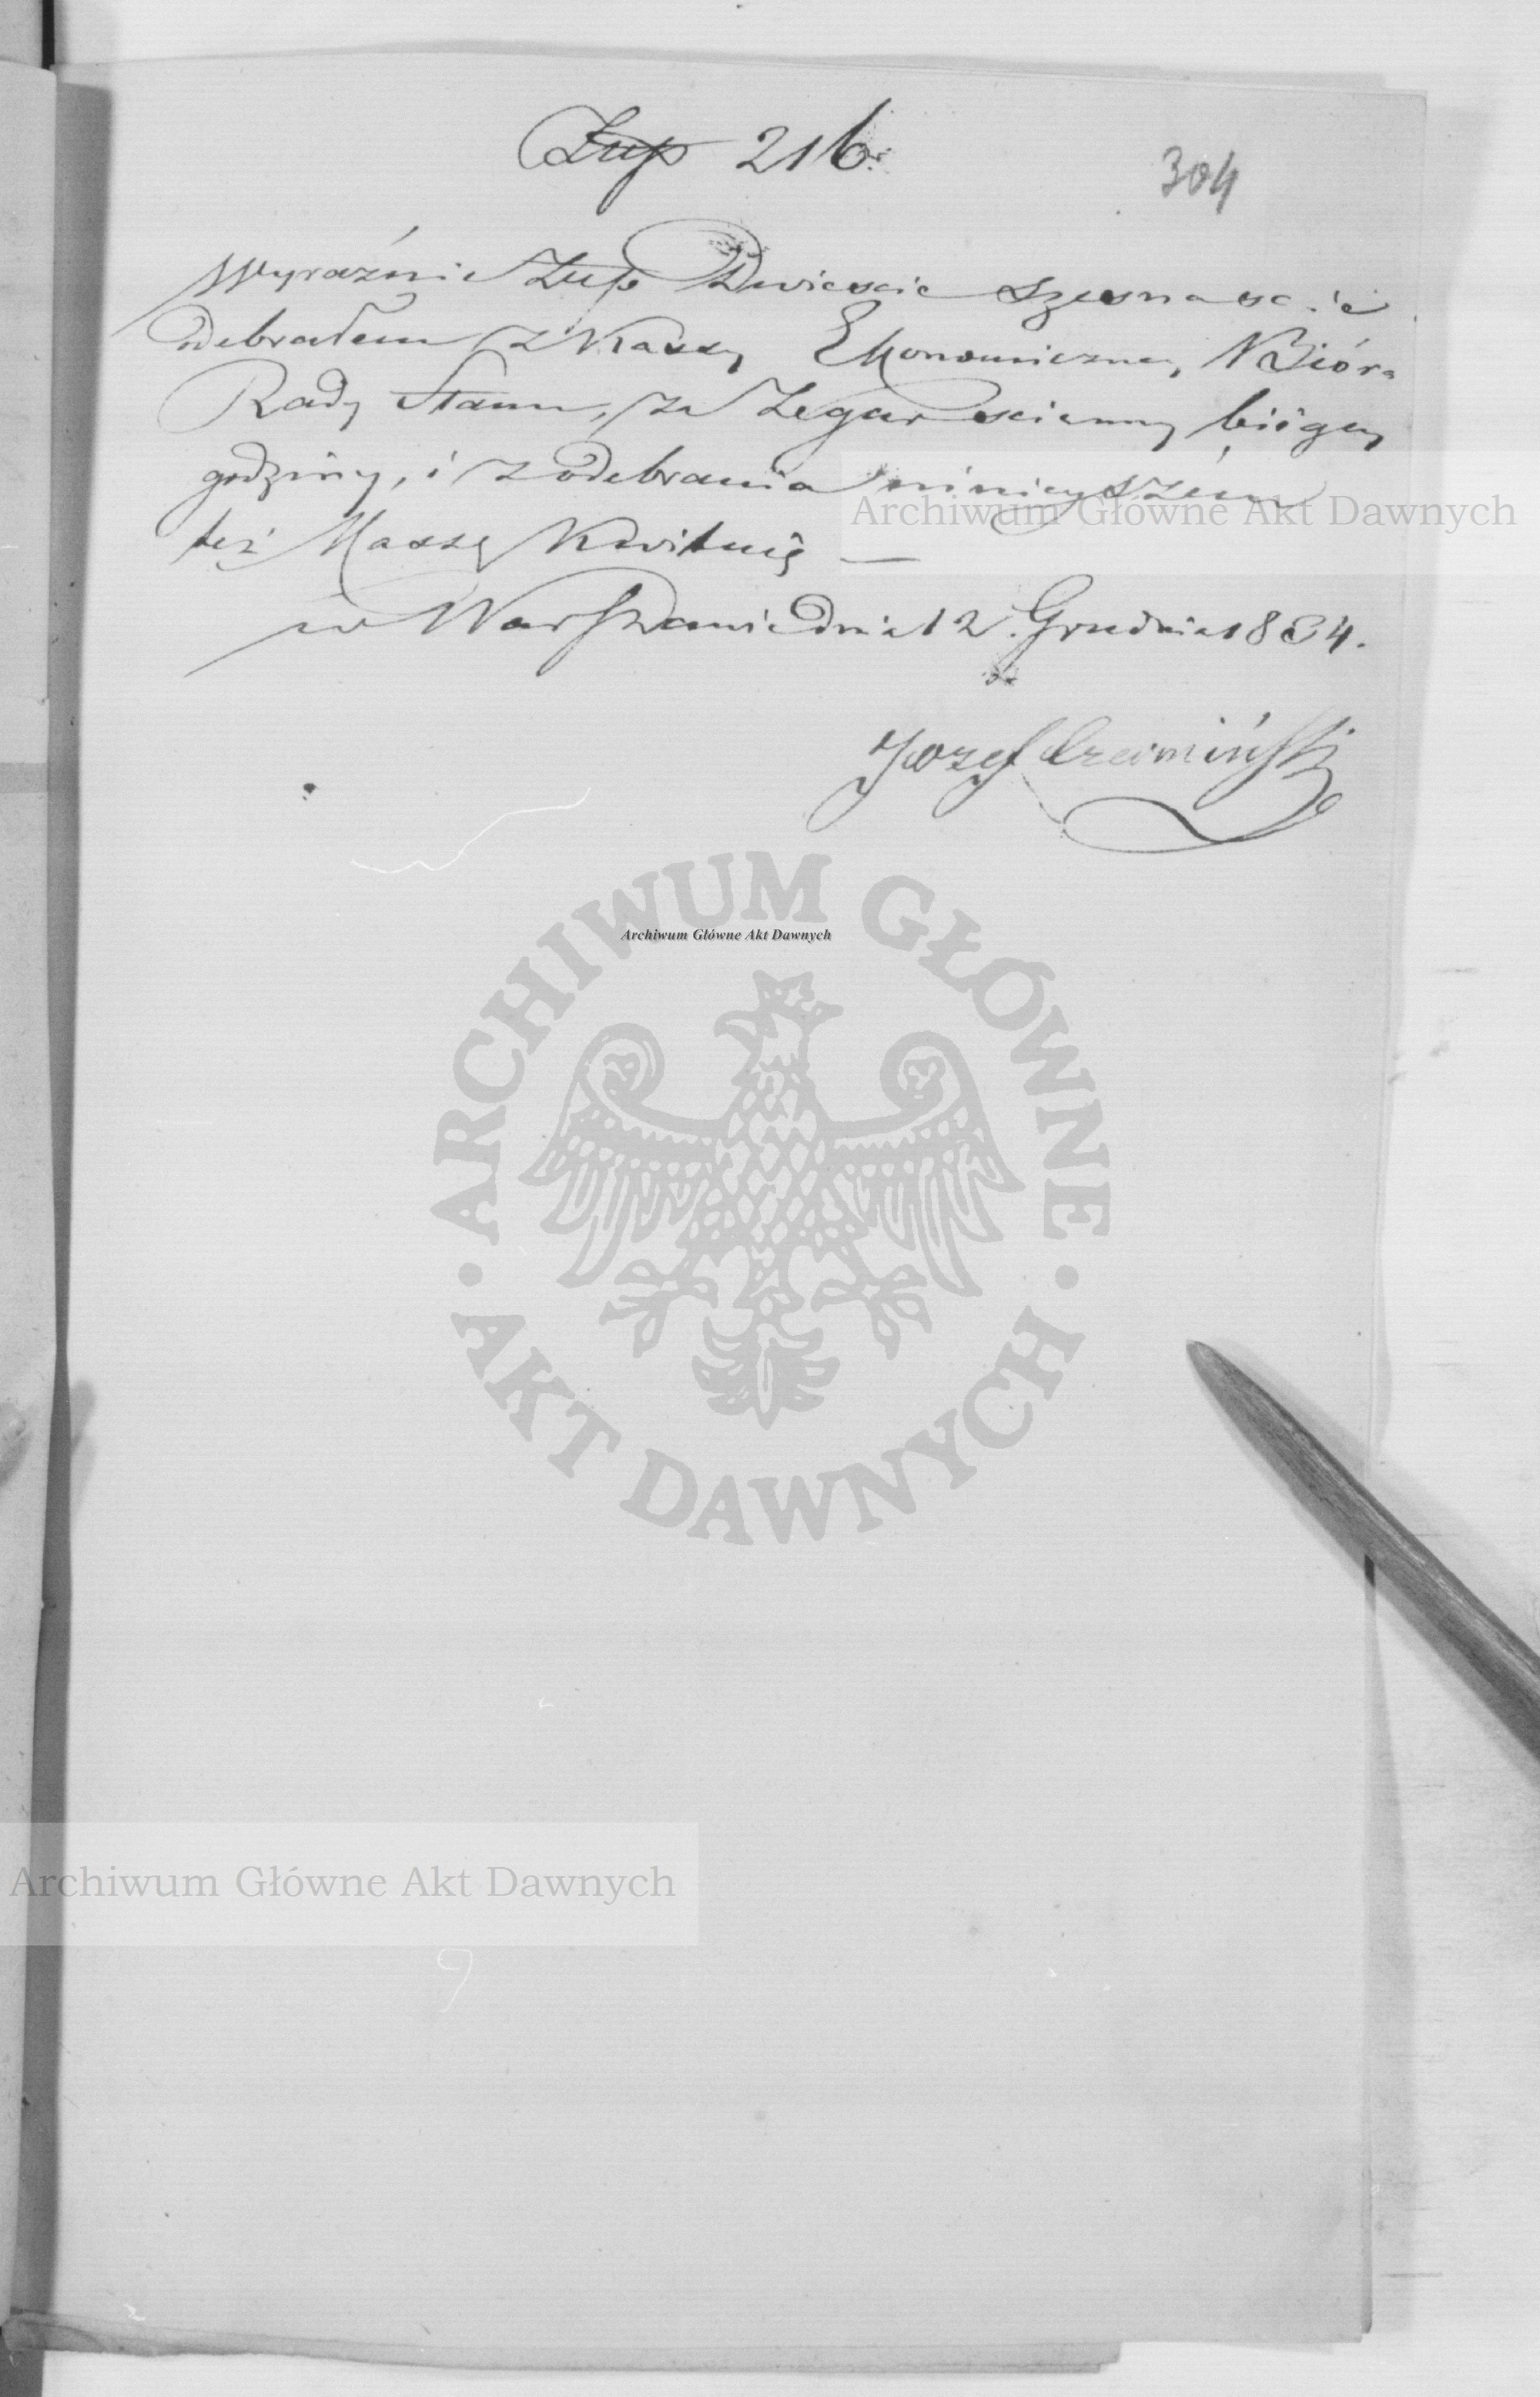 Złlp 216.
304
Wyraźnie Złlp Dwiescie szesnascie
odebrałem z Kassy Ekonomiczney, Bióra
Rady Stanu, za Zegar scienny biiący
godziny, i z odebrania ninieyszem
też Kassę Kwituię —
w Warszawie dnia 12 Grudnia 1834.
Jozef
Archiwum Główne Akt Dawnych
ARCHIWUM GŁÓWNE AKT DAWNYCH
Archiwum Główne Akt Dawnych
Archiwum Główne Akt Dawnych